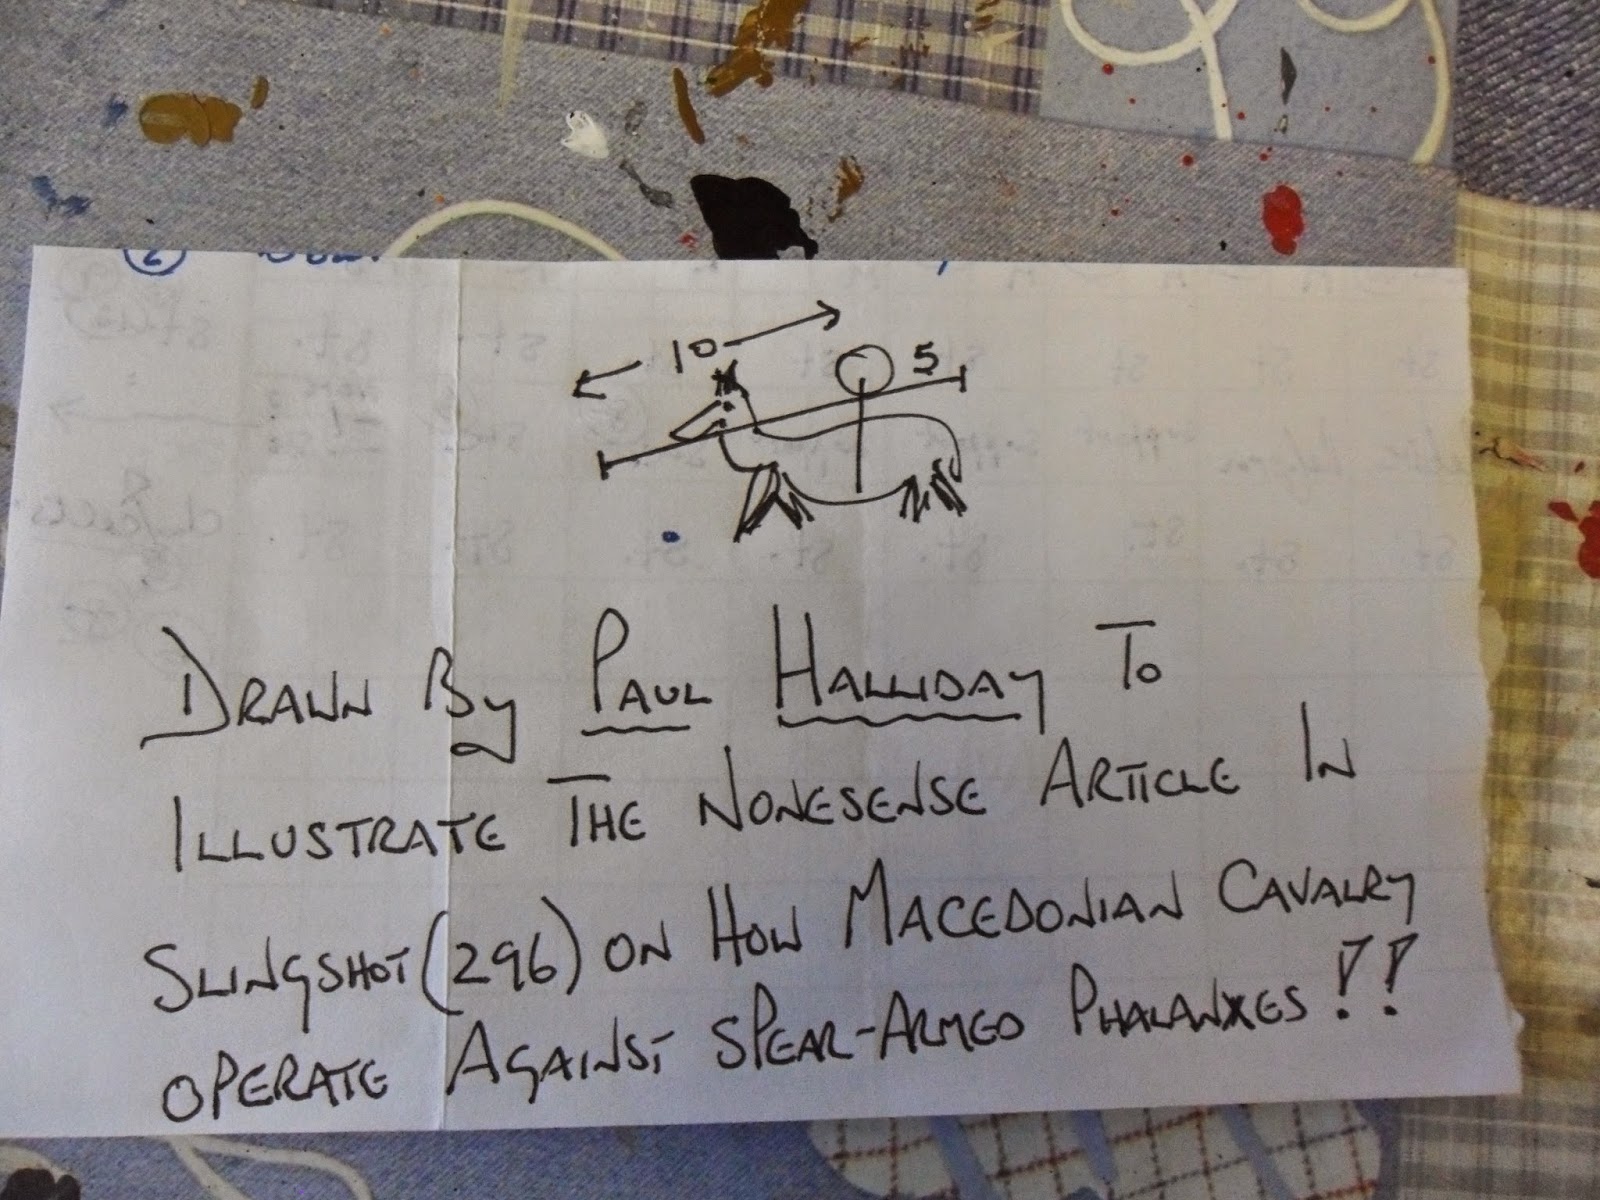 10
5
DRAWN BY PAUL HALLIDAY TO
ILLUSTRATE THE NONESENSE ARTICLE IN
SLINGSHOT (296) ON HOW MACEDONIAN CAVALRY
OPERATE AGAINST SPEAR-ARMED PHALANXES!!